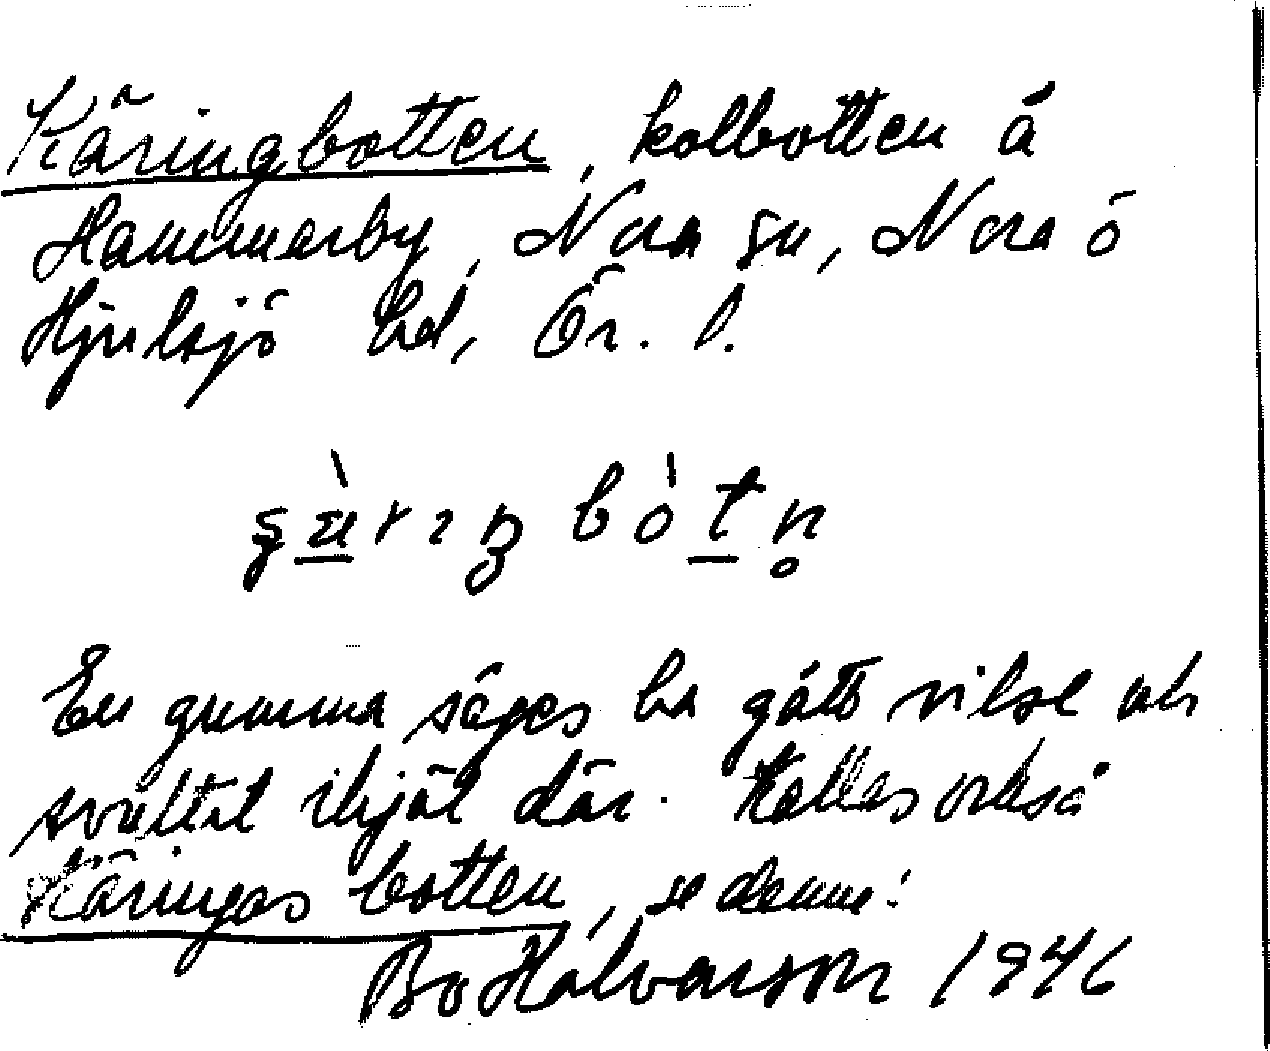 Käringbotten, kolbotten å
Hammarby, Nora sn, Nora ö
Hjulsjö bd, Ör. l.
En gumma säges ha gått vilse och
svultit ihjäl där. Kallas också
Käringas botten, se denna!
Bo Halvarson 1946